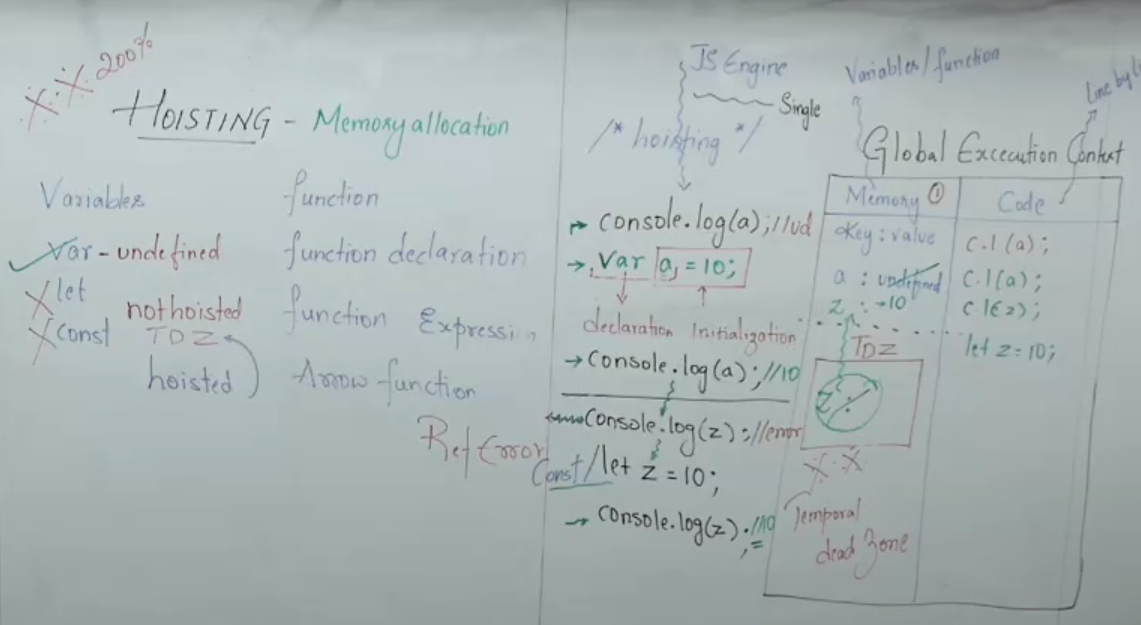 X. X. 200%
HOISTING - Memory allocation
Variables function
var - undefined function declaration
let
not hoisted function Expression
const TDZ
hoisted Arrow function
JS Engine
Single
/* hoisting */
console.log(a); //ud
var a = 10;
declaration Initialization
console.log(a); //10
console.log(z); //error
Ref Error
Const/let z = 10;
console.log(z). //10
Variables/function
Line by
Global Excecution Context
Memory ① Code
Key : value C.l (a);
a : undefined C.l(a);
z : → 10 C l(z);
TDZ let z = 10;
Z
X X
Temporal
dead Zone